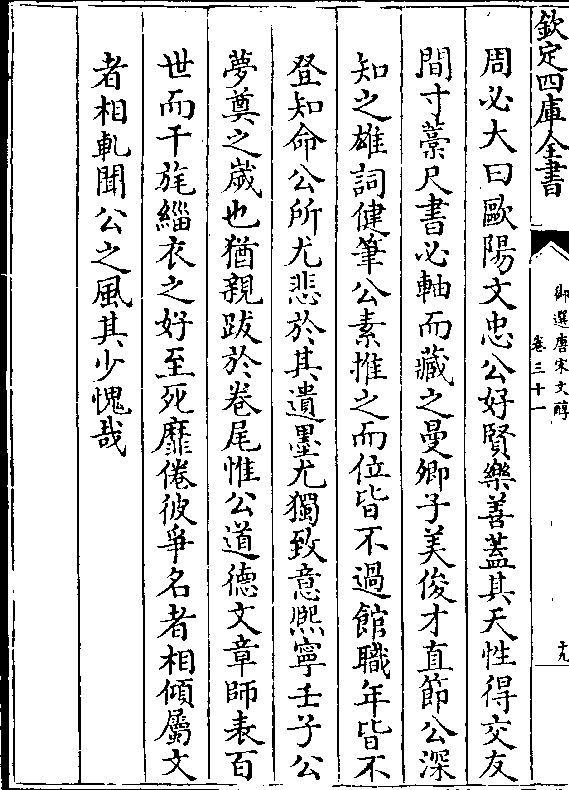 欽定四庫全書
御選唐宋文醇
卷三十一
十九
周必大曰歐陽文忠公好賢樂善蓋其天性得交友
間寸藁尺書必軸而藏之曼卿子美俊才直節公深
知之雄詞健筆公素推之而位皆不過館職年皆不
登知命公所尤悲於其遺墨尤獨致意熈寧壬子公
夢奠之歲也猶親跋於卷尾惟公道德文章師表百
世而干旄緇衣之好至死靡倦彼爭名者相傾屬文
者相軋聞公之風其少愧哉